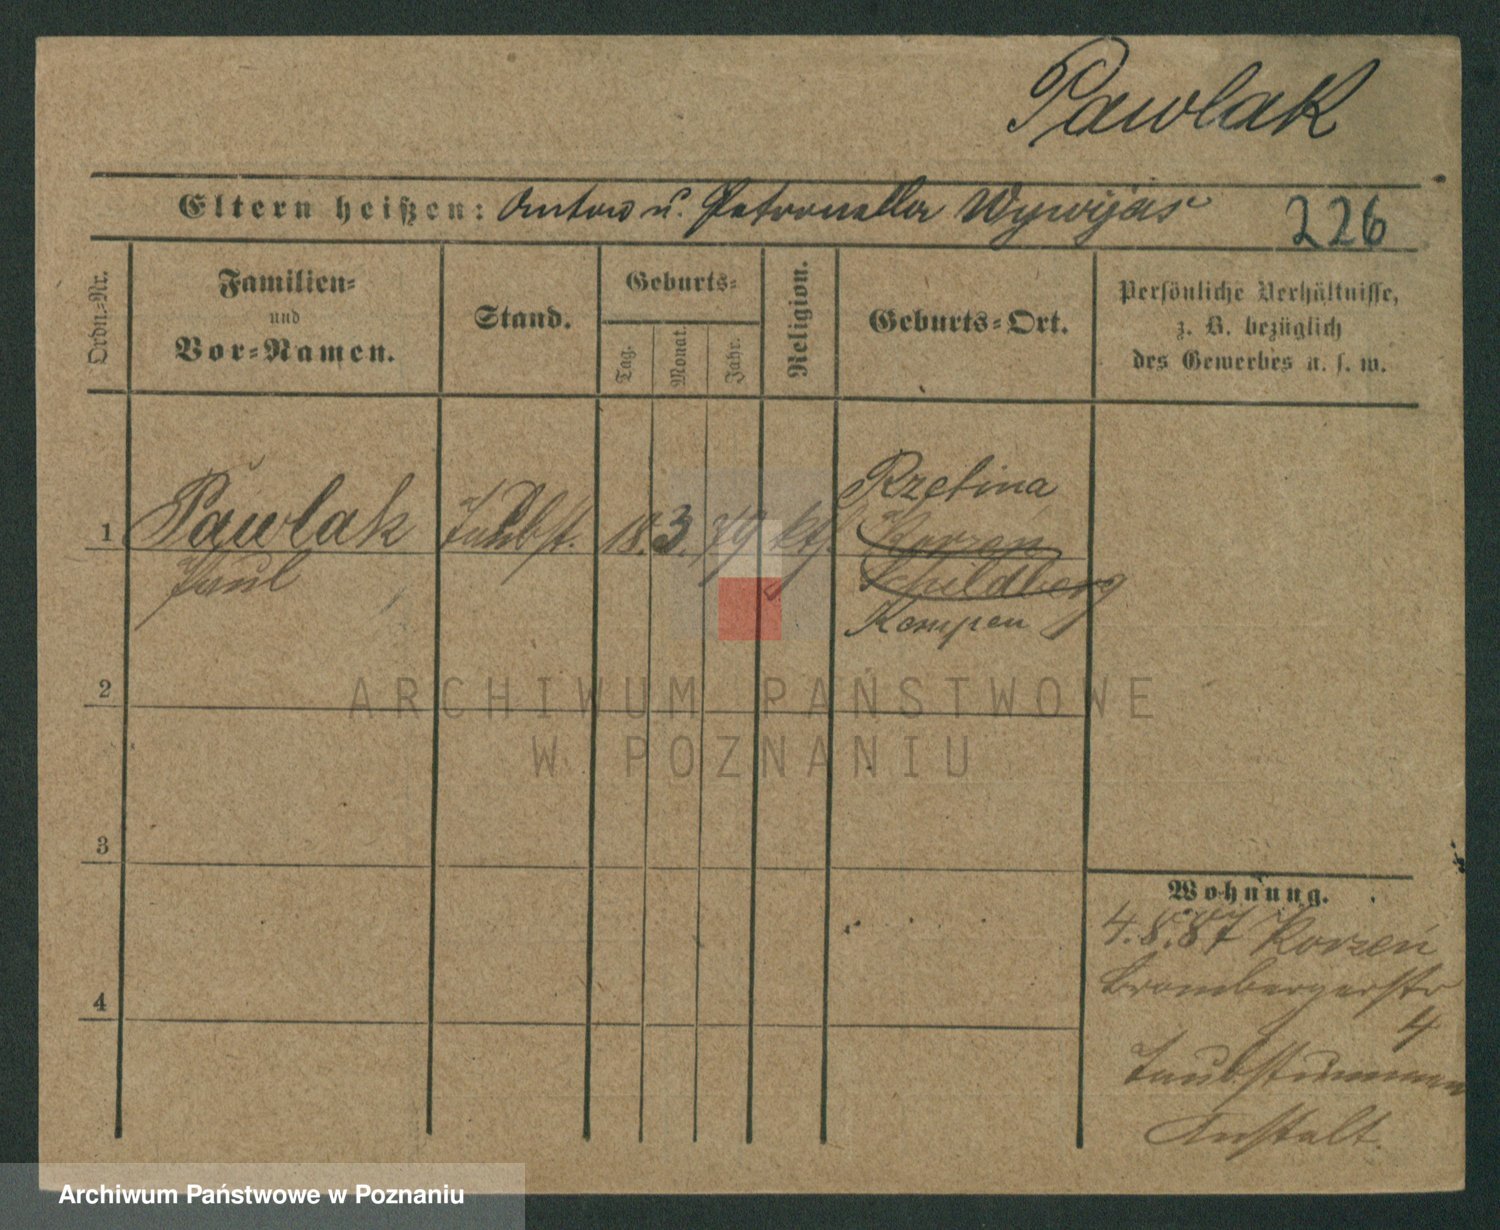 Pawlak
Eltern heißen: Anton u. Petronella Wywijas
226
Ordn.-Nr.
Familien-
und
Vor-Namen.
Stand.
Geburts-
Tag.
Monat.
Jahr.
Religion.
Geburts-Ort.
Persönliche Verhältnisse,
z. B. bezüglich
des Gewerbes u. s. w.
1
Pawlak
Paul
Taubst.
18.
3.
79
kth.
Rzetnia
Korzen
Schildberg
Kempen
2
3
4
Wohnung.
4.8.87 Korzeń
Brombergerstr
4
Taubstummen
Anstalt.
ARCHIWUM PAŃSTWOWE
W POZNANIU
Archiwum Państwowe w Poznaniu